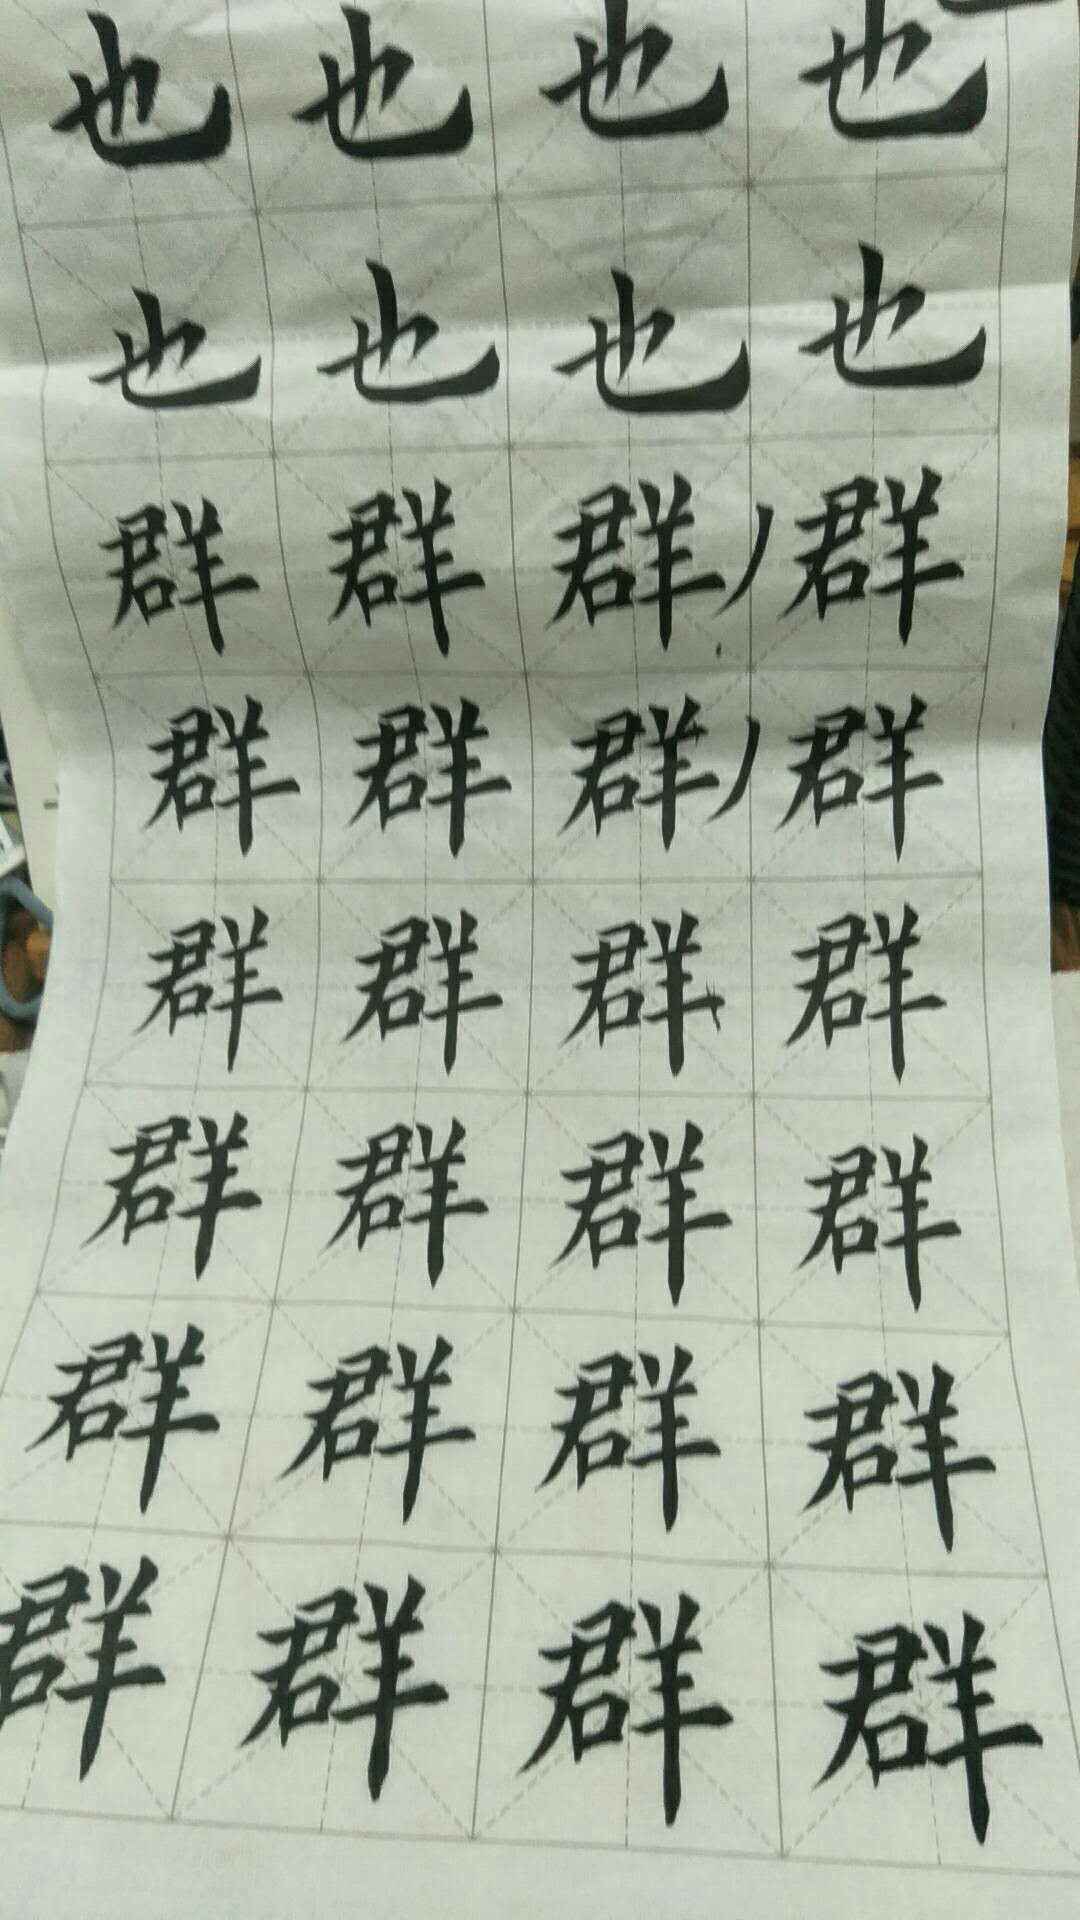 也也也也
也也也也
群群群群
群群群群
群群群群
群群群群
群群群群
群群群群